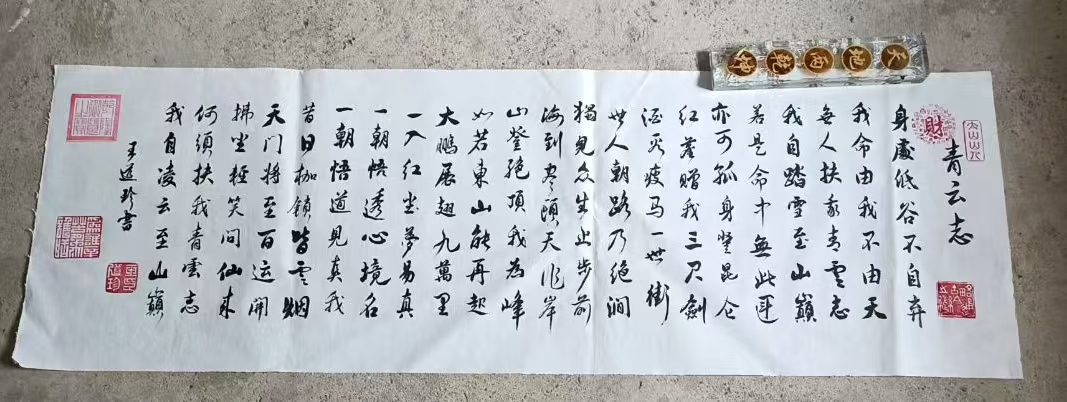 青云志
身處低谷不自弃
我命由我不由天
無人扶我青雲志
我自踏雪至山巔
若是命中無此
亦可孤身登昆仑
红塵赠我三尺劍
瘦马一世
世人朝路乃绝涧
獨見众生止步前
海到尽頭天作岸
山登绝頂我为峰
如若東山能再起
大鹏展翅九萬里
一入红尘梦易真
一朝悟透心境名
一朝悟道見真我
昔日枷鎖皆雲烟
天门将至百运開
拂尘轻笑问仙来
何須扶我青雲志
我自凌云至山巔
王道珍書
財